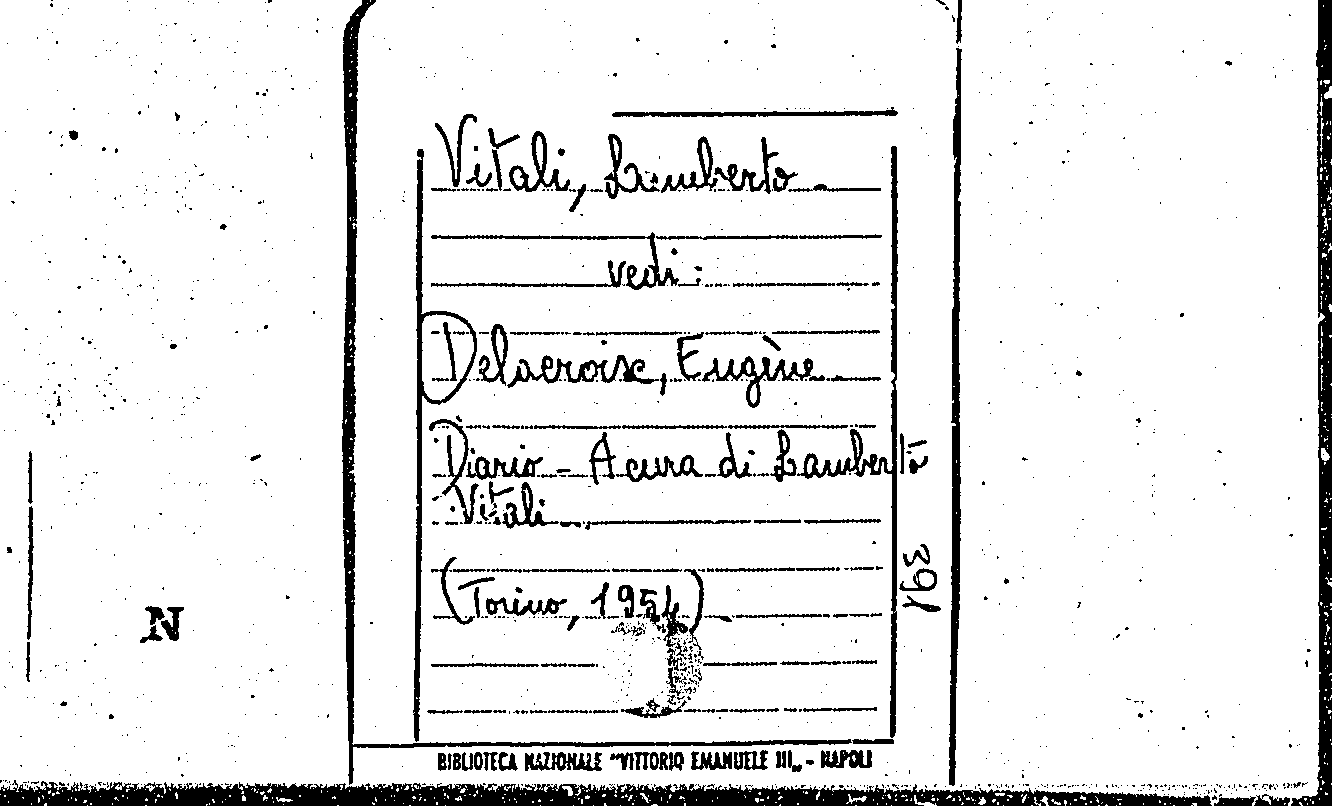 Vitali, Lamberto -
vedi:
Delacroix, Eugène -
Diario - A cura di Lamberto
Vitali -
(Torino, 1954) -
391
N
BIBLIOTECA NAZIONALE "VITTORIO EMANUELE III„ - NAPOLI